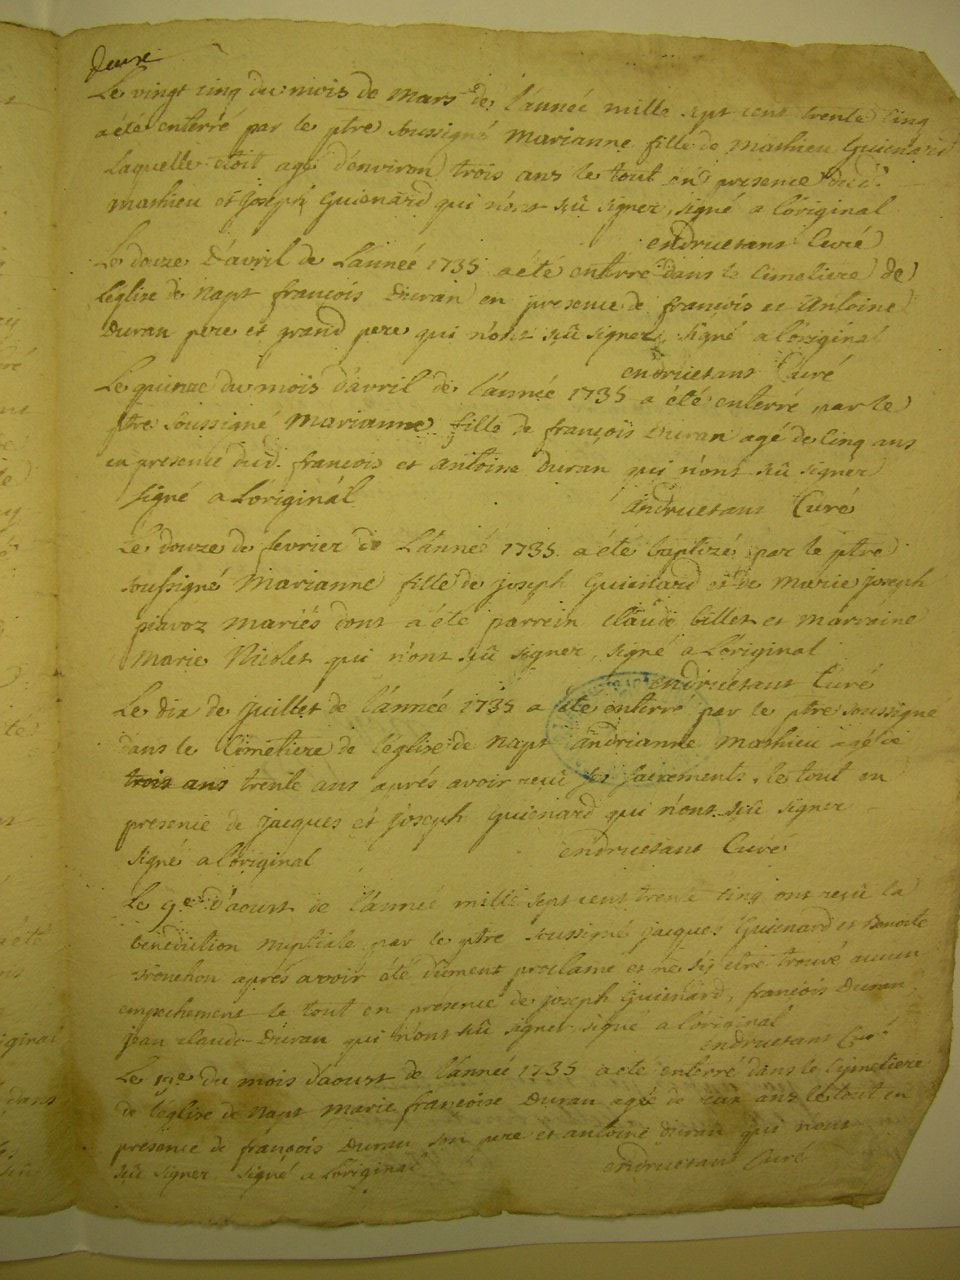 Le vingt cinq du mois de Mars de l'année mille sept cent trente cinq
a été enterré par le ptre soussigné Marianne fille de mathieu Guienard
Laquelle étoit agé d'environ trois ans le tout en presence dud.
mathieu et joseph Guienard qui n'ont sçû signer, signé a l'original
endruetant Curé
Le douze d'avril de L'année 1735 a été enterré dans le Cimetiere de
l'église de Napt françois Duran en presence de françois et Antoine
Duran pere et grand pere qui n'ont sçû signer, signé a l'original
endruetant Curé
Le quinze du mois d'avril de l'année 1735 a été enterré par le
ptre soussigné Marianne fille de françois Duran agé de Cinq ans
en presence dud. françois et antoine Duran qui n'ont sçû signer
signé a L'original
andruetant Curé
Le douze de fevrier de L'année 1735 a été baptizé par le ptre
soussigné Marianne fille de joseph Guienard et de Marie joseph
piavoz mariés dont a été parrein Claude billet et marraine
Marie Nicolet qui n'ont sçû signer, signé a L'original
endruetant Curé
Le dix de juillet de l'année 1735 a été enterré par le ptre soussigné
dans le Cimetiere de l'église de Napt andrianne Mathieu agée de
trois ans trente ans aprés avoir reçû ses sacrements, le tout en
presence de jacques et joseph Guienard qui n'ont sçû signer
signé a l'original
endruetant Curé
Le 9e d'aoust de l'année mille sept cent trente cinq ont reçû la
benediction nuptiale par le ptre soussigné jacques Guienard et Benoite
aprés avoir été dument proclamé et ne s'y être trouvé aucun
empechement le tout en presence de joseph Guienard, françois Duran,
jean claude Duran qui n'ont sçû signer signé a l'original
endruetant Curé
Le 19e du mois d'aoust de l'année 1735 a été enterré dans le Cymetiere
de l'église de Napt Marie françoise Duran agée de ans le tout en
presence de françois Duran son pere et antoine Duran qui n'ont
sçû signer signé a L'original
endruetant Curé